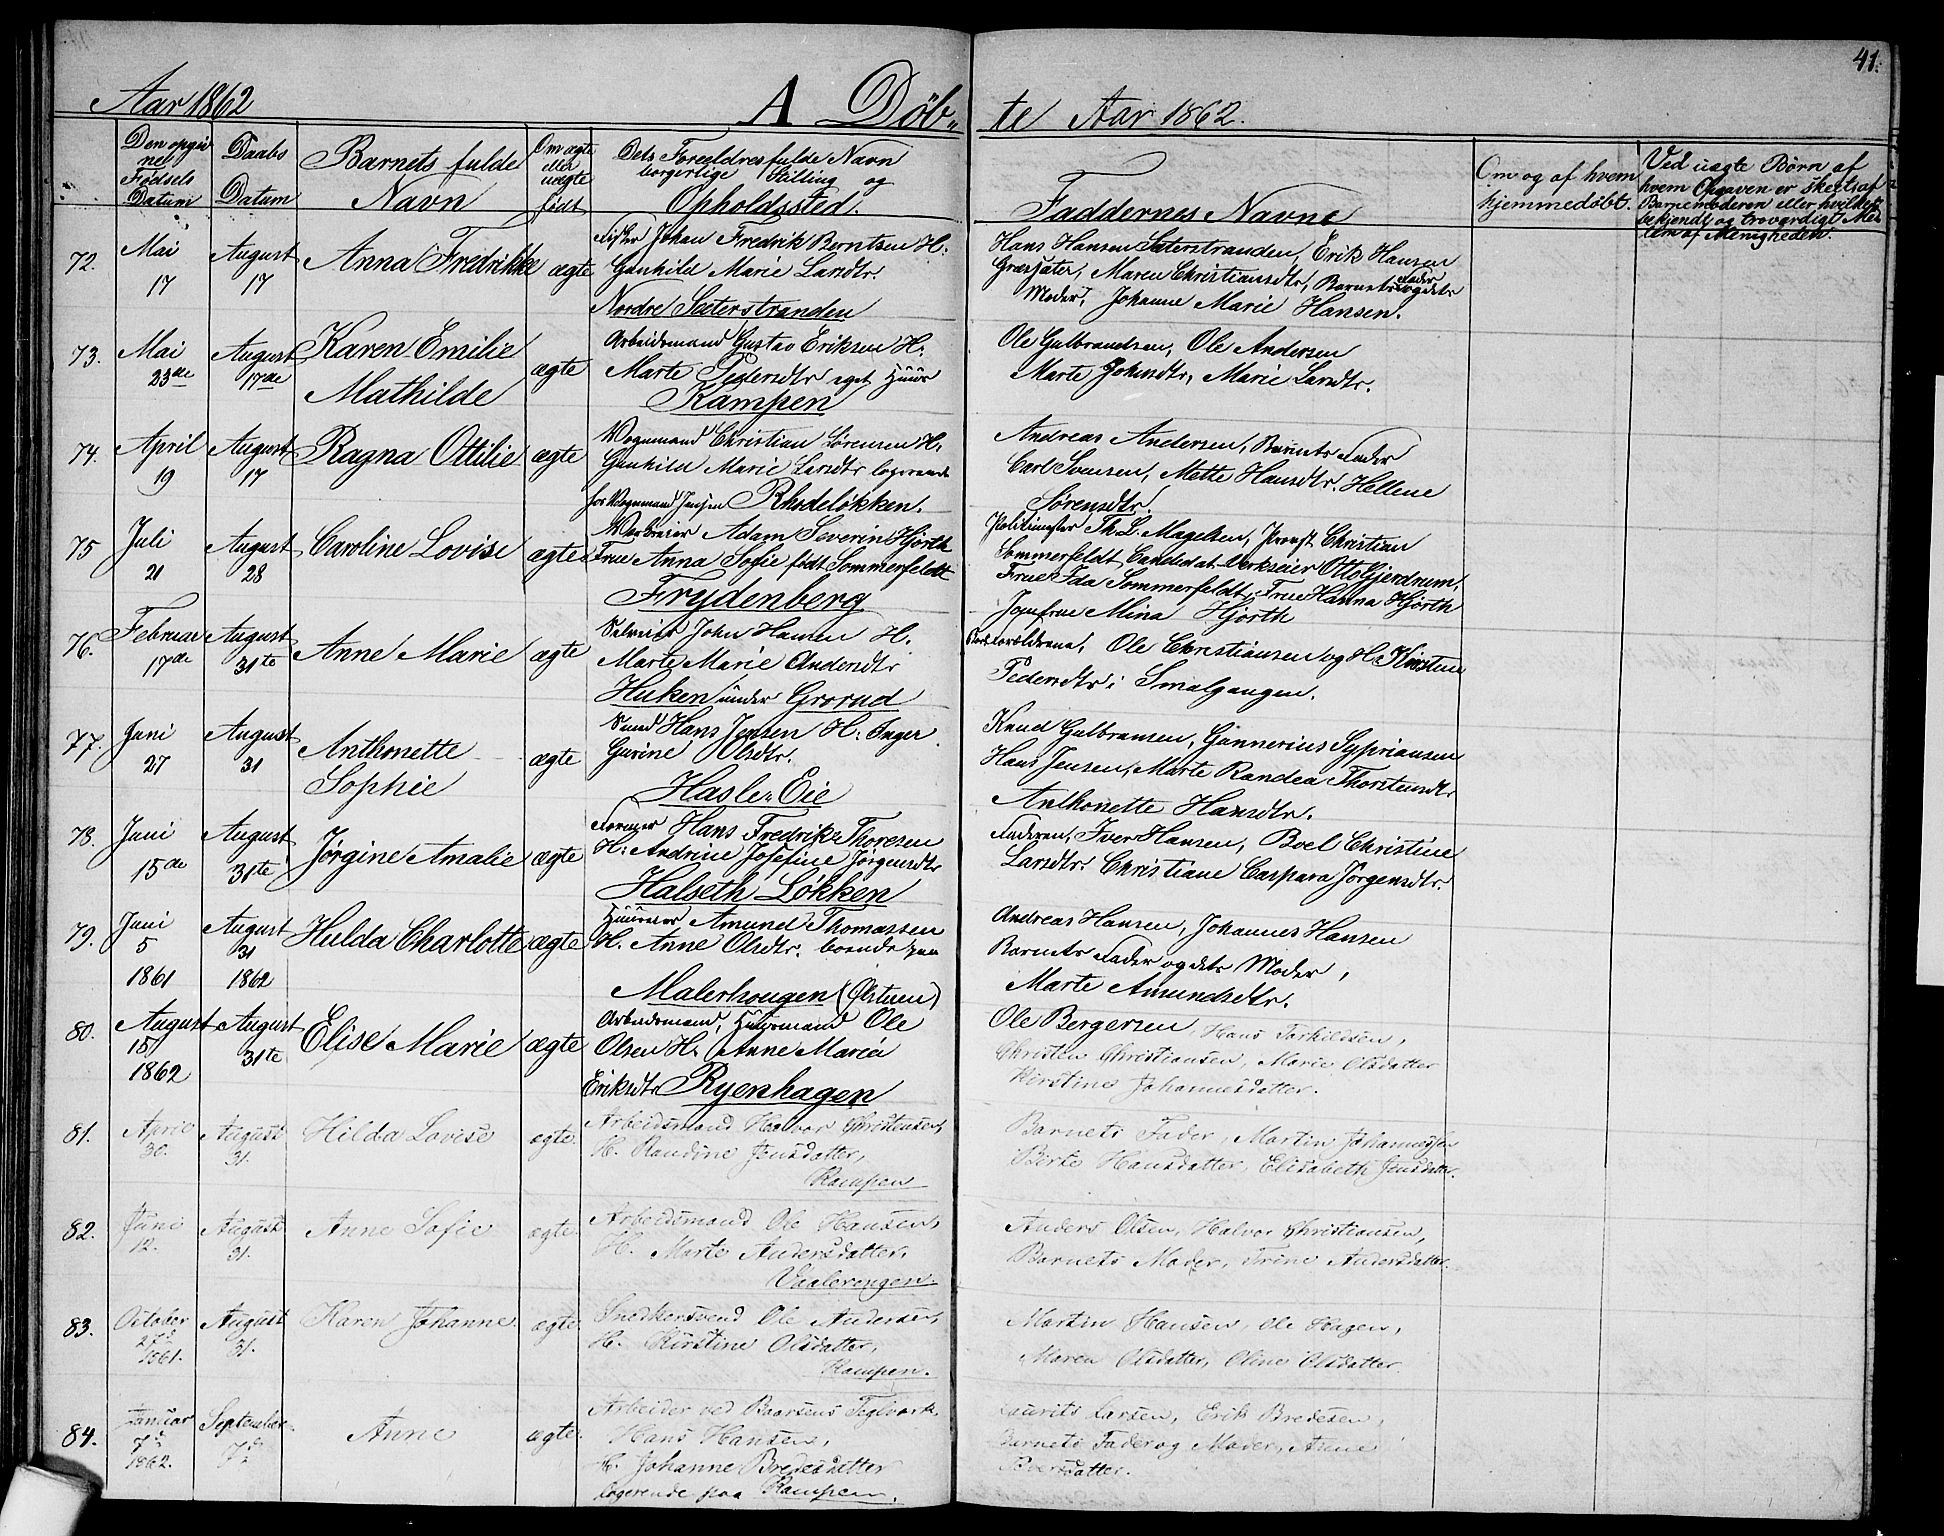 41.
Aar 1862 A Döb-te Aar 1862.
Den opgivnes Fødsels Datum
Daabs Datum
Barnets fulde Navn
Om ægte eller uægte født
Dets Forældres fulde Navn borgerlige Stilling og Opholdssted.
Faddernes Navne
Om og af hvem hjemmedøbt.
Ved uægte Børn af hvem Opgaven er skeet af Barnemoderen eller hvilket bekjendt og troværdigt Medlem af Menigheden.
72. Mai 17 August 17 Anna Fredrikke ægte
Fisker Johan Fredrik Berntsen H:
Gunhild Marie Larsdtr.
Nordre Sæterstranden
Hans Hansen Sæterstranden, Erik Hansen
Græsjater, Maren Christiansdtr, Barnets Fader og dets
Moder, Johanne Marie Hansen.
73. Mai 23de August 17de Karen Emilie Mathilde ægte
Arbeidsmand Gustav Eriksen H:
Marte Pedersdtr eget Huus
Kampen
Ole Gulbrandsen, Ole Andersen
Marte Johnsdtr, Marie Larsdtr.
74. April 19 August 17 Ragna Ottilie ægte
Vognmand Christian Sørensen H.
Gunhild Marie Larsdtr logerende
hos Vognmand Jensen Rhodeløkken.
Andreas Andersen, Barnets Fader
Carl Svensen, Mette Hansdtr. Hellene
Sørensdtr.
75 Juli 21 August 28 Caroline Lovise ægte
Værkseier Adam Severin Hjörth
Frue Anna Sofie født Sommerfeldt
Frydenberg
Politimester Th. L. Magelsen, Provst Christian
Sommerfeldt Candidat Værkseier Otto Gjerdrum,
Frue Ida Sommerfeldt, Frue Hanna Hjörth
Jomfrue Mina Hjörth
76. Februar 17de August 31te Anne Marie ægte
Selveier John Hansen H.
Marte Marie Andersdtr
Huken under Grorud
Forældrene, Ole Christiansen og H. Kirstine
Pedersdtr i Smalgangen.
77. Juni 27 August 31 Anthonette Sophie ægte
Smed Hans Jensen H: Inger
Gurine Olsdtr.
Hasle-Eie
Knud Gulbransen, Gunnerius Sypriansen
Hans Jensen, Marte Randea Thorstensdtr
Anthonette Hansdtr.
78. Juni 15de August 31te Jørgine Amalie ægte
Former Hans Fredrik Thoresen
H. Andrine Josefine Jørgensdtr
Halseth Løkken
Faderen, Iver Hansen, Boel Christine
Larsdtr. Christiane Caspara Jørgensdtr.
79. Juni 5 1861 August 31 1862 Hulda Charlotte ægte
Huuseier Amund Thomassen
H. Anne Olsdtr. boende paa
Malerhougen (Østuen)
Andreas Hansen, Johannes Hansen
Barnets Fader og dets Moder,
Marte Amundsdtr.
80. August 15 1862 August 31te Elise Marie ægte
Arbeidsmand, Huusmand Ole
Olsen H. Anne Maria
Eriksdtr Ryenhagen
Ole Bergersen Hans Torkildsen,
Christen Christiansen, Marie Olsdatter
Kirstine Johannesdatter.
81. April 30. August 31. Hilda Lovise ægte.
Arbeidsmand Halvor Christensen,
H. Randine Jensdatter,
Kampen
Barnets Fader, Martin Johannessen
Birte Hansdatter, Elisabeth Jensdatter.
82. Juni 12. August 31. Anne Sofie ægte.
Arbeidsmand Ole Hansen,
H. Marte Andersdatter,
Vaalerengen.
Anders Olsen, Halvor Christiansen,
Barnets Moder, Trine Andersdatter.
83. October 27 1861. August 31. Karen Johanne. ægte.
Snedkersvend Ole Andersen,
H. Kirstine Olsdatter,
Kampen.
Martin Hansen, Ole Hagen,
Maren Olsdatter, Oline Olsdatter
84. Januar 7 1862. September 7 Anne ægte.
Arbeider ved Baarsens Teglværk,
Hans Hansen,
H. Johanne Bredesdatter
logerende paa Kampen.
Laurits Larsen, Erik Bredesen,
Barnets Fader og Moder, Anne